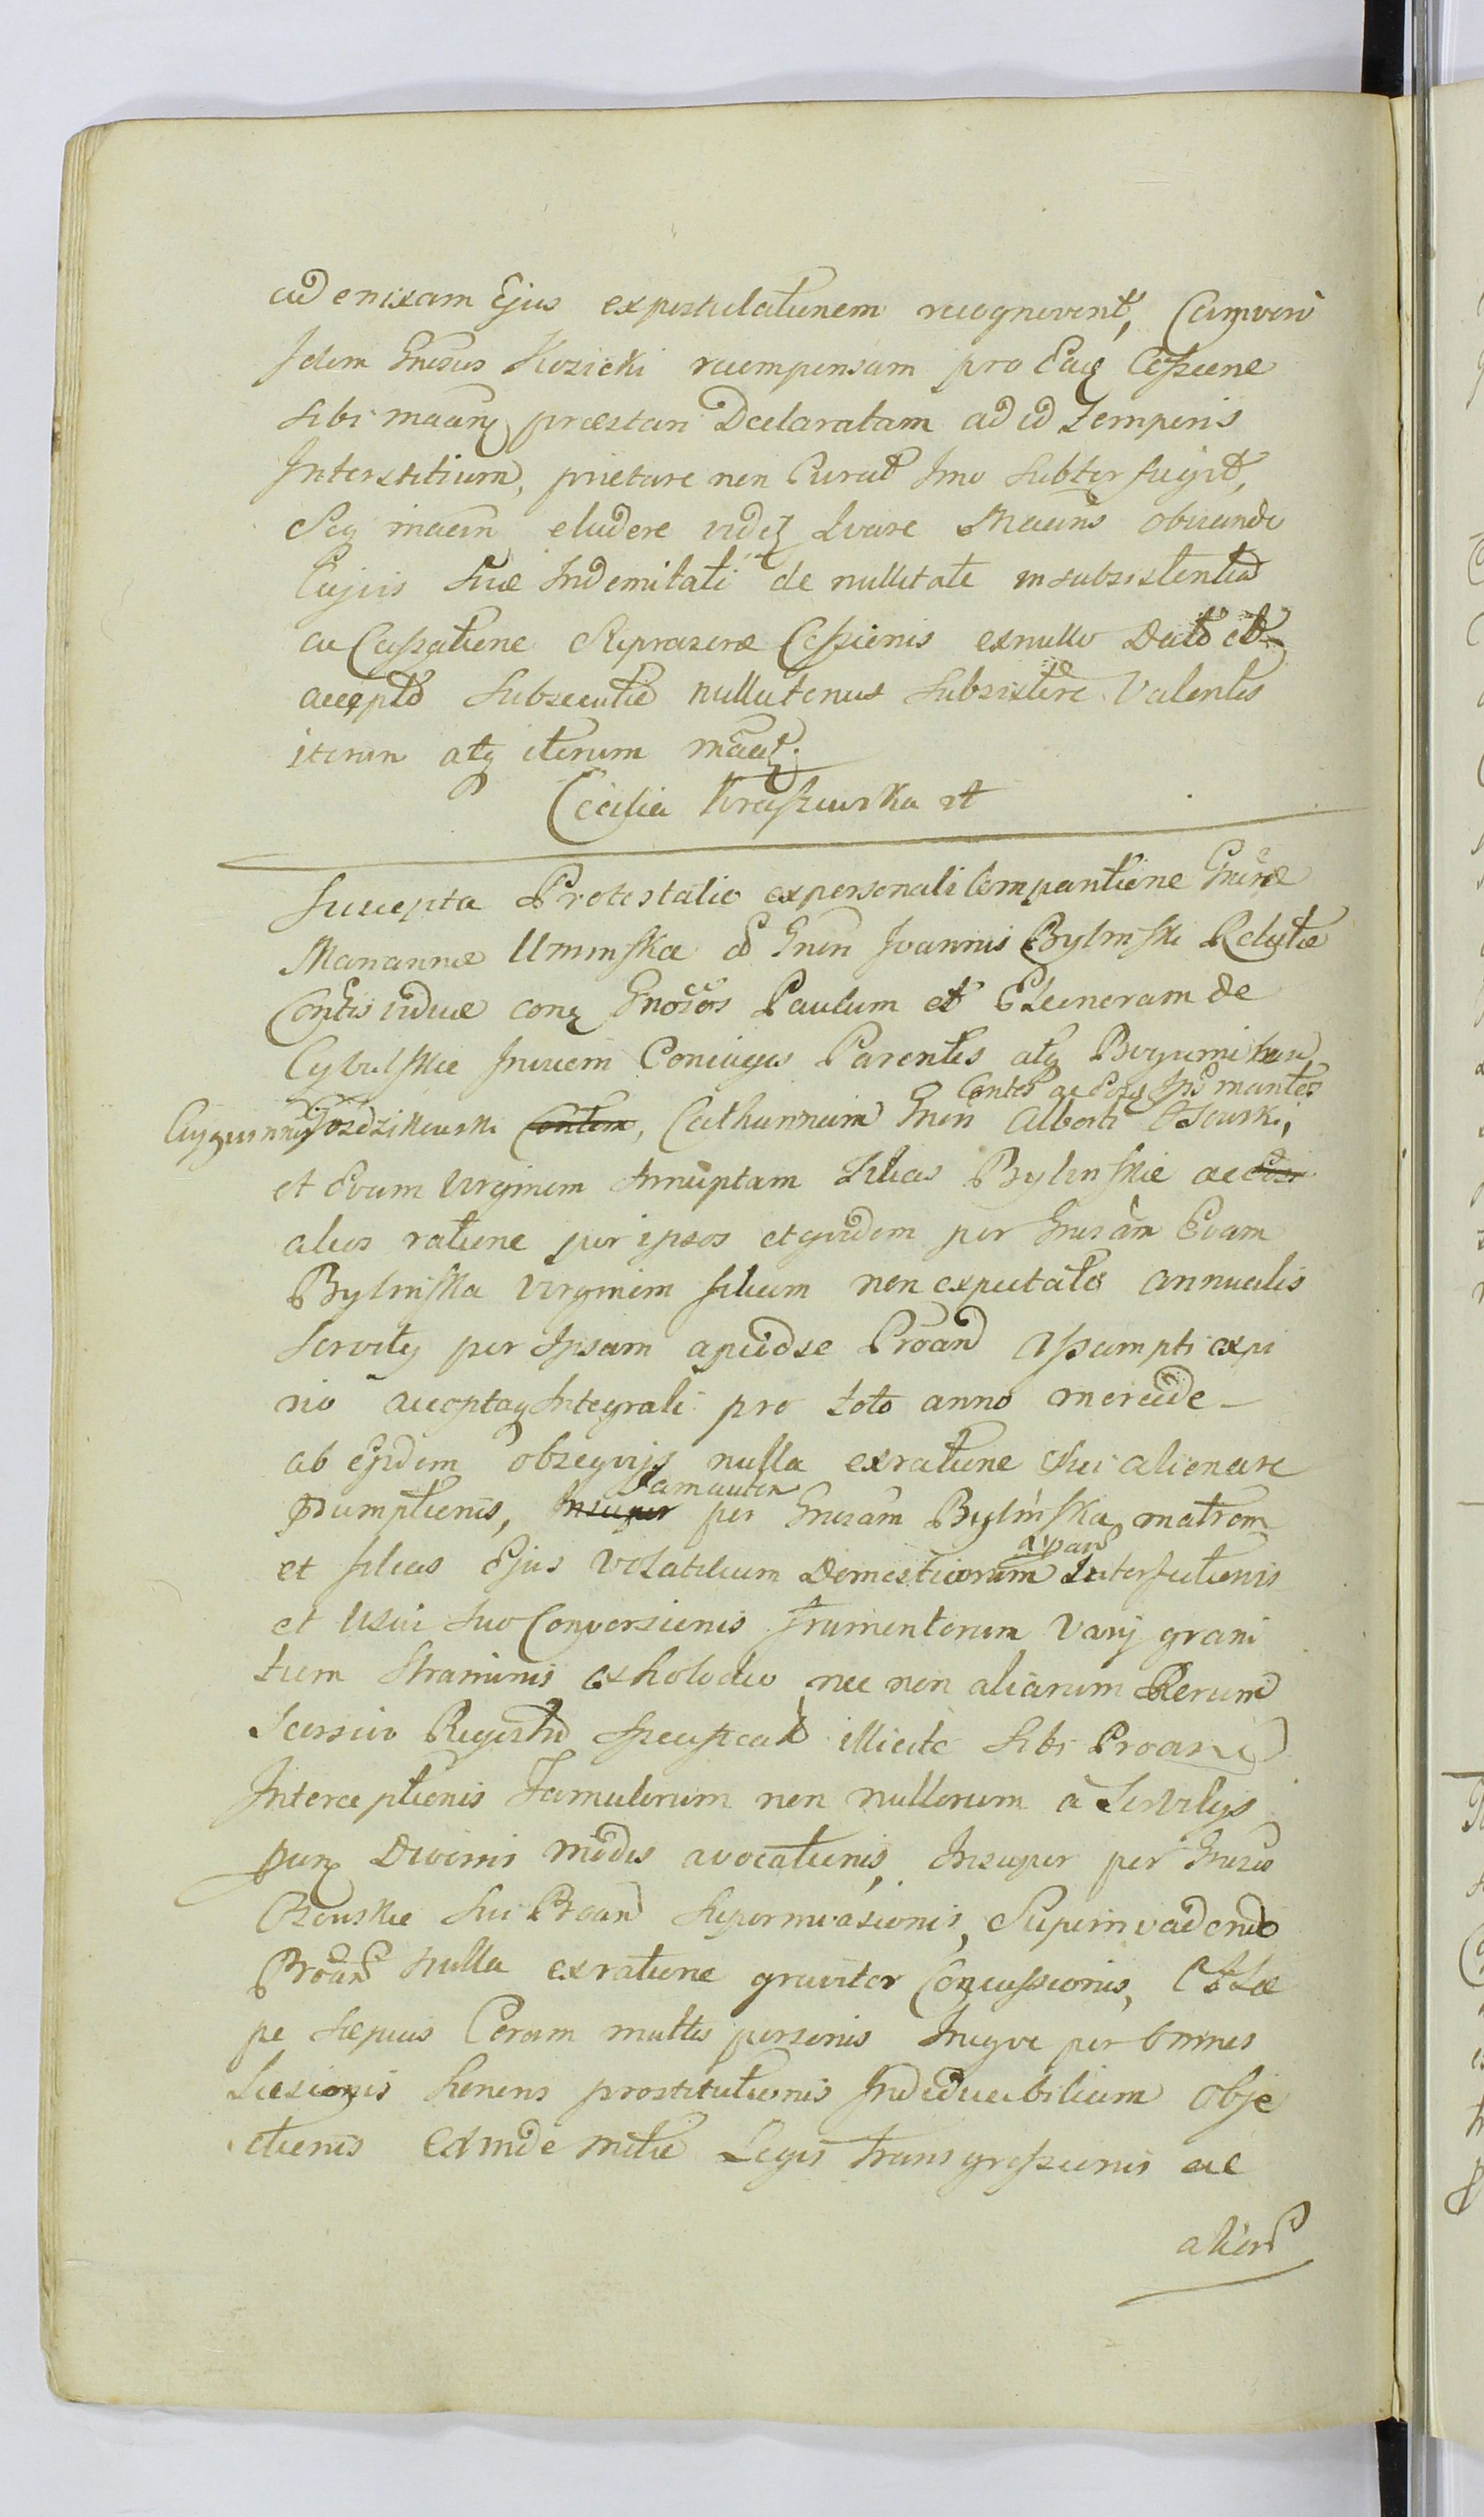 ad enixam Ejus expostulationem recognovent, Cumvero
Idem Gnosus Kozicki recompensam pro Eaq Cessione
sibi maanq præstari Declaratam ad id Temporis
Interstitium, prætare non Curat Imo subterfugit,
Seq maem eludere videq Quare Maans obviando
Cujvis suæ Indemitati de nullitate insubsistentia
ac Cassatione Supraseræ Cessionis exnullo Dato et
accepto Subsecutæ nullatenus subsistere Valentis
iterum atq iterum maat.
Cecilia Kraszewska mt
Suscepta Protestatio expersonali Comparitione Gnosæ
Mariannæ Uminska Gnsi Joannis Bylinski Relictæ
Contis viduæ conq Gnosos Paulum et Eleonoram de
Cybulskie Invicem Coniuges Parentes atq Bogumilam
Contes ac Eorq Ips maritos
Gozdzikowski Contem, Catharinam Gnsi Alberti Osowski,
et Evam Virginem Innuptam Filias Bylinskie ac
alios ratione per ipsos et quidem per Gnosam Evam
Bylinska Virginem filiam non expectato Annualis
Servitij per Ipsam apud se Proan Assumpti expi
rio acceptaq Integrali pro toto anno mercede
ab Ejsdem obsequijs nulla exratione Sui alienare
psumptionis, Insuper per Gnosam Bylinska matrem
Tam autem
et filias Ejus Volatilium Domesticorum Interfectionis
et Usui suo Conversionis frumentorum Varij grani
tum Straminis ex holodio nec non aliarum Rerum
Scorsivo Registro specificat illicite sibi Proan
Interceptionis Famulorum non nullorum à Servitijs
Divernis modis avocationis, Insuper per Gnoso
Osowskie sui Proan Superinvasionis, Superinvadendo
Proan nulla exratione graviter Concussionis, Et Sæ
pe sæpius Coram multis personis Inique per Omnes
Læsionis honoris prostitutionis Indeducibilium Obje
ctionis Exinde mltæ Legis transgressionis ac
alior